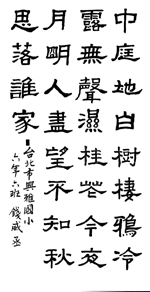 中庭地白樹棲鴉冷
露無聲濕桂花今夜
月明人盡望不知秋
思落誰家
台北市興雅國小
六年六班 錢威丞